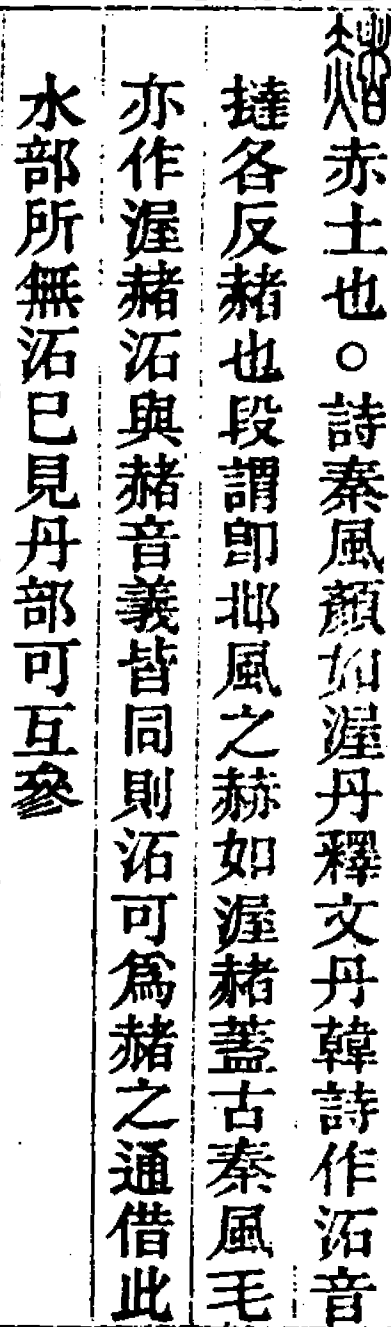 赭赤土也○詩秦風顏如渥丹釋文丹韓詩作沰音
撻各反赭也段謂卽邶風之赫如渥赭蓋古秦風毛
亦作渥赭沰與赭音義皆同則沰可爲赭之通借此
水部所無沰巳見丹部可互叅